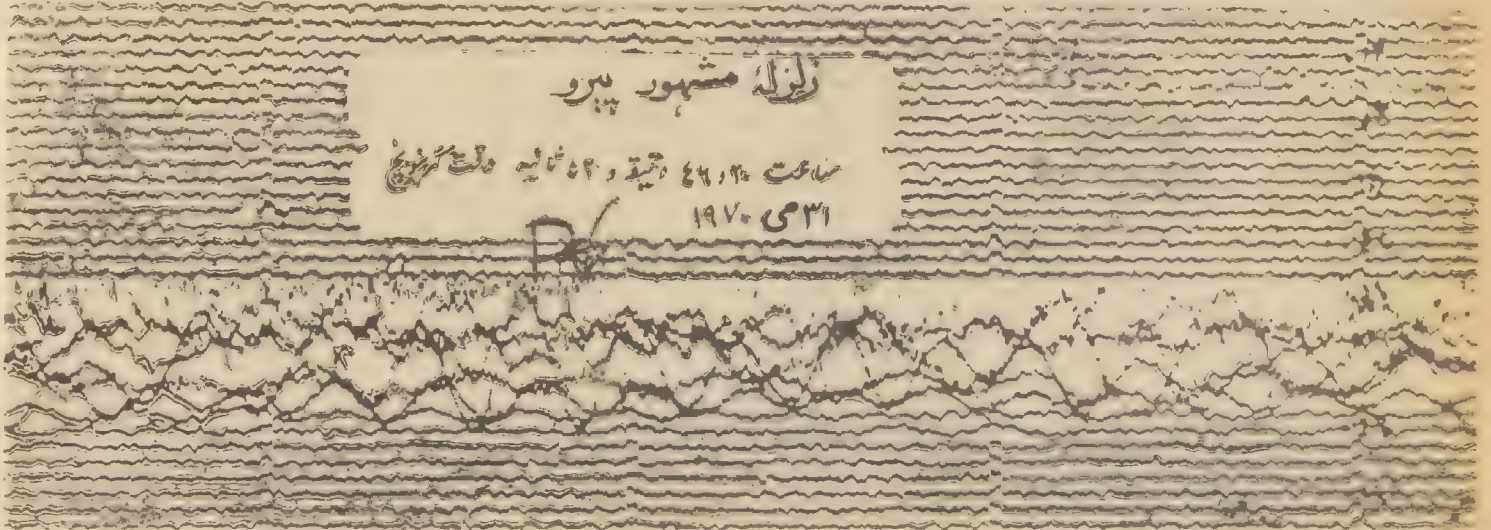 زلزلهٔ مشهور پیرو
ساعت ۲۰ و ٤٦ دقیقه و ثانیه وقت گرنویچ
۳۱ می ۱۹۷۰
P